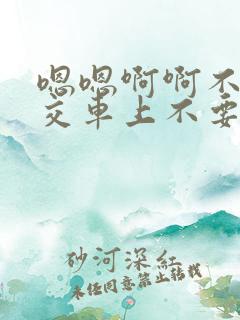 嗯嗯啊啊不
交车上不要
砂河深红
未经同意禁止转载